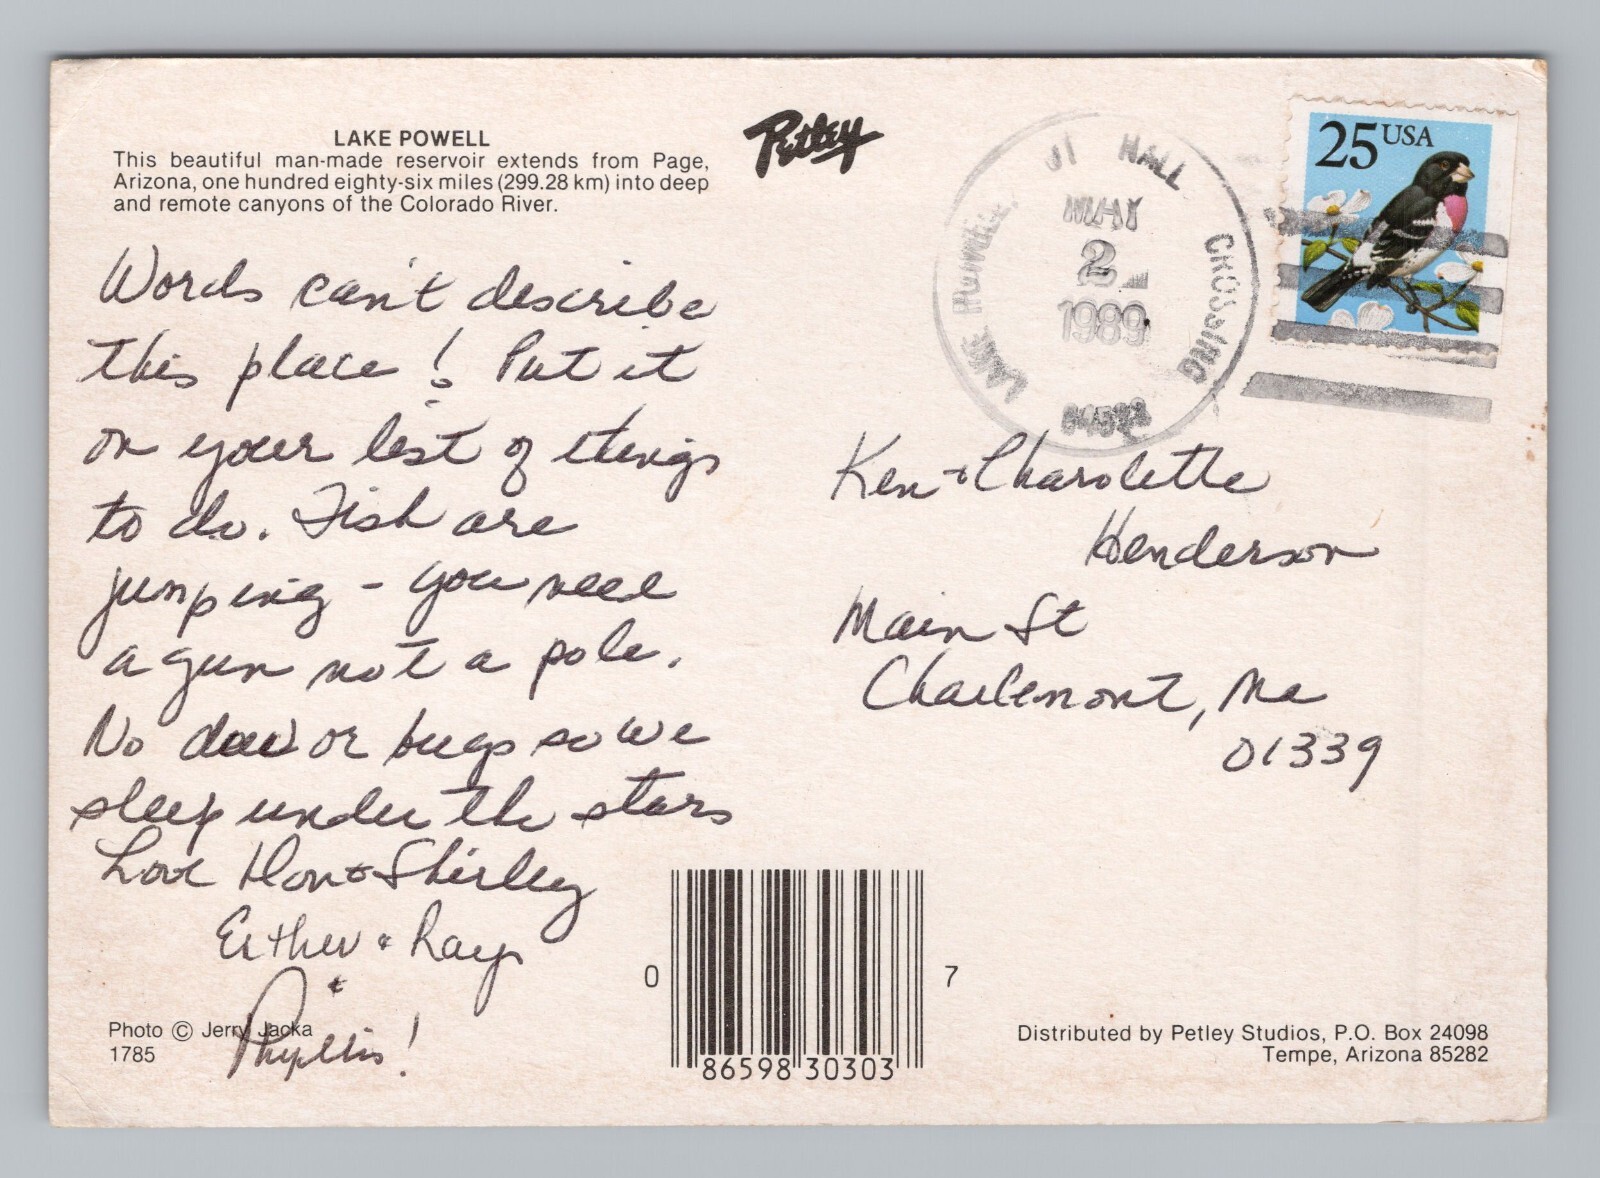 LAKE POWELL
This beautiful man-made reservoir extends from Page,
Arizona, one hundred eighty-six miles (299.28 km) into deep
and remote canyons of the Colorado River.
Petley
HALL
CROSSING
LAKE
MAY
2
1989
25 USA
Words can't describe
this place! Put it
on your list of things
to do. Fish are
jumping - you need
a gun not a pole.
No dew or bugs so we
sleep under the stars
Love Don & Shirley
Esther & Ray
&
Phyllis!
Ken & Charolette
Henderson
Main St
Charlemont, Ma
01339
Photo © Jerry Jacka
1785
0 86598 30303 7
Distributed by Petley Studios, P.O. Box 24098
Tempe, Arizona 85282